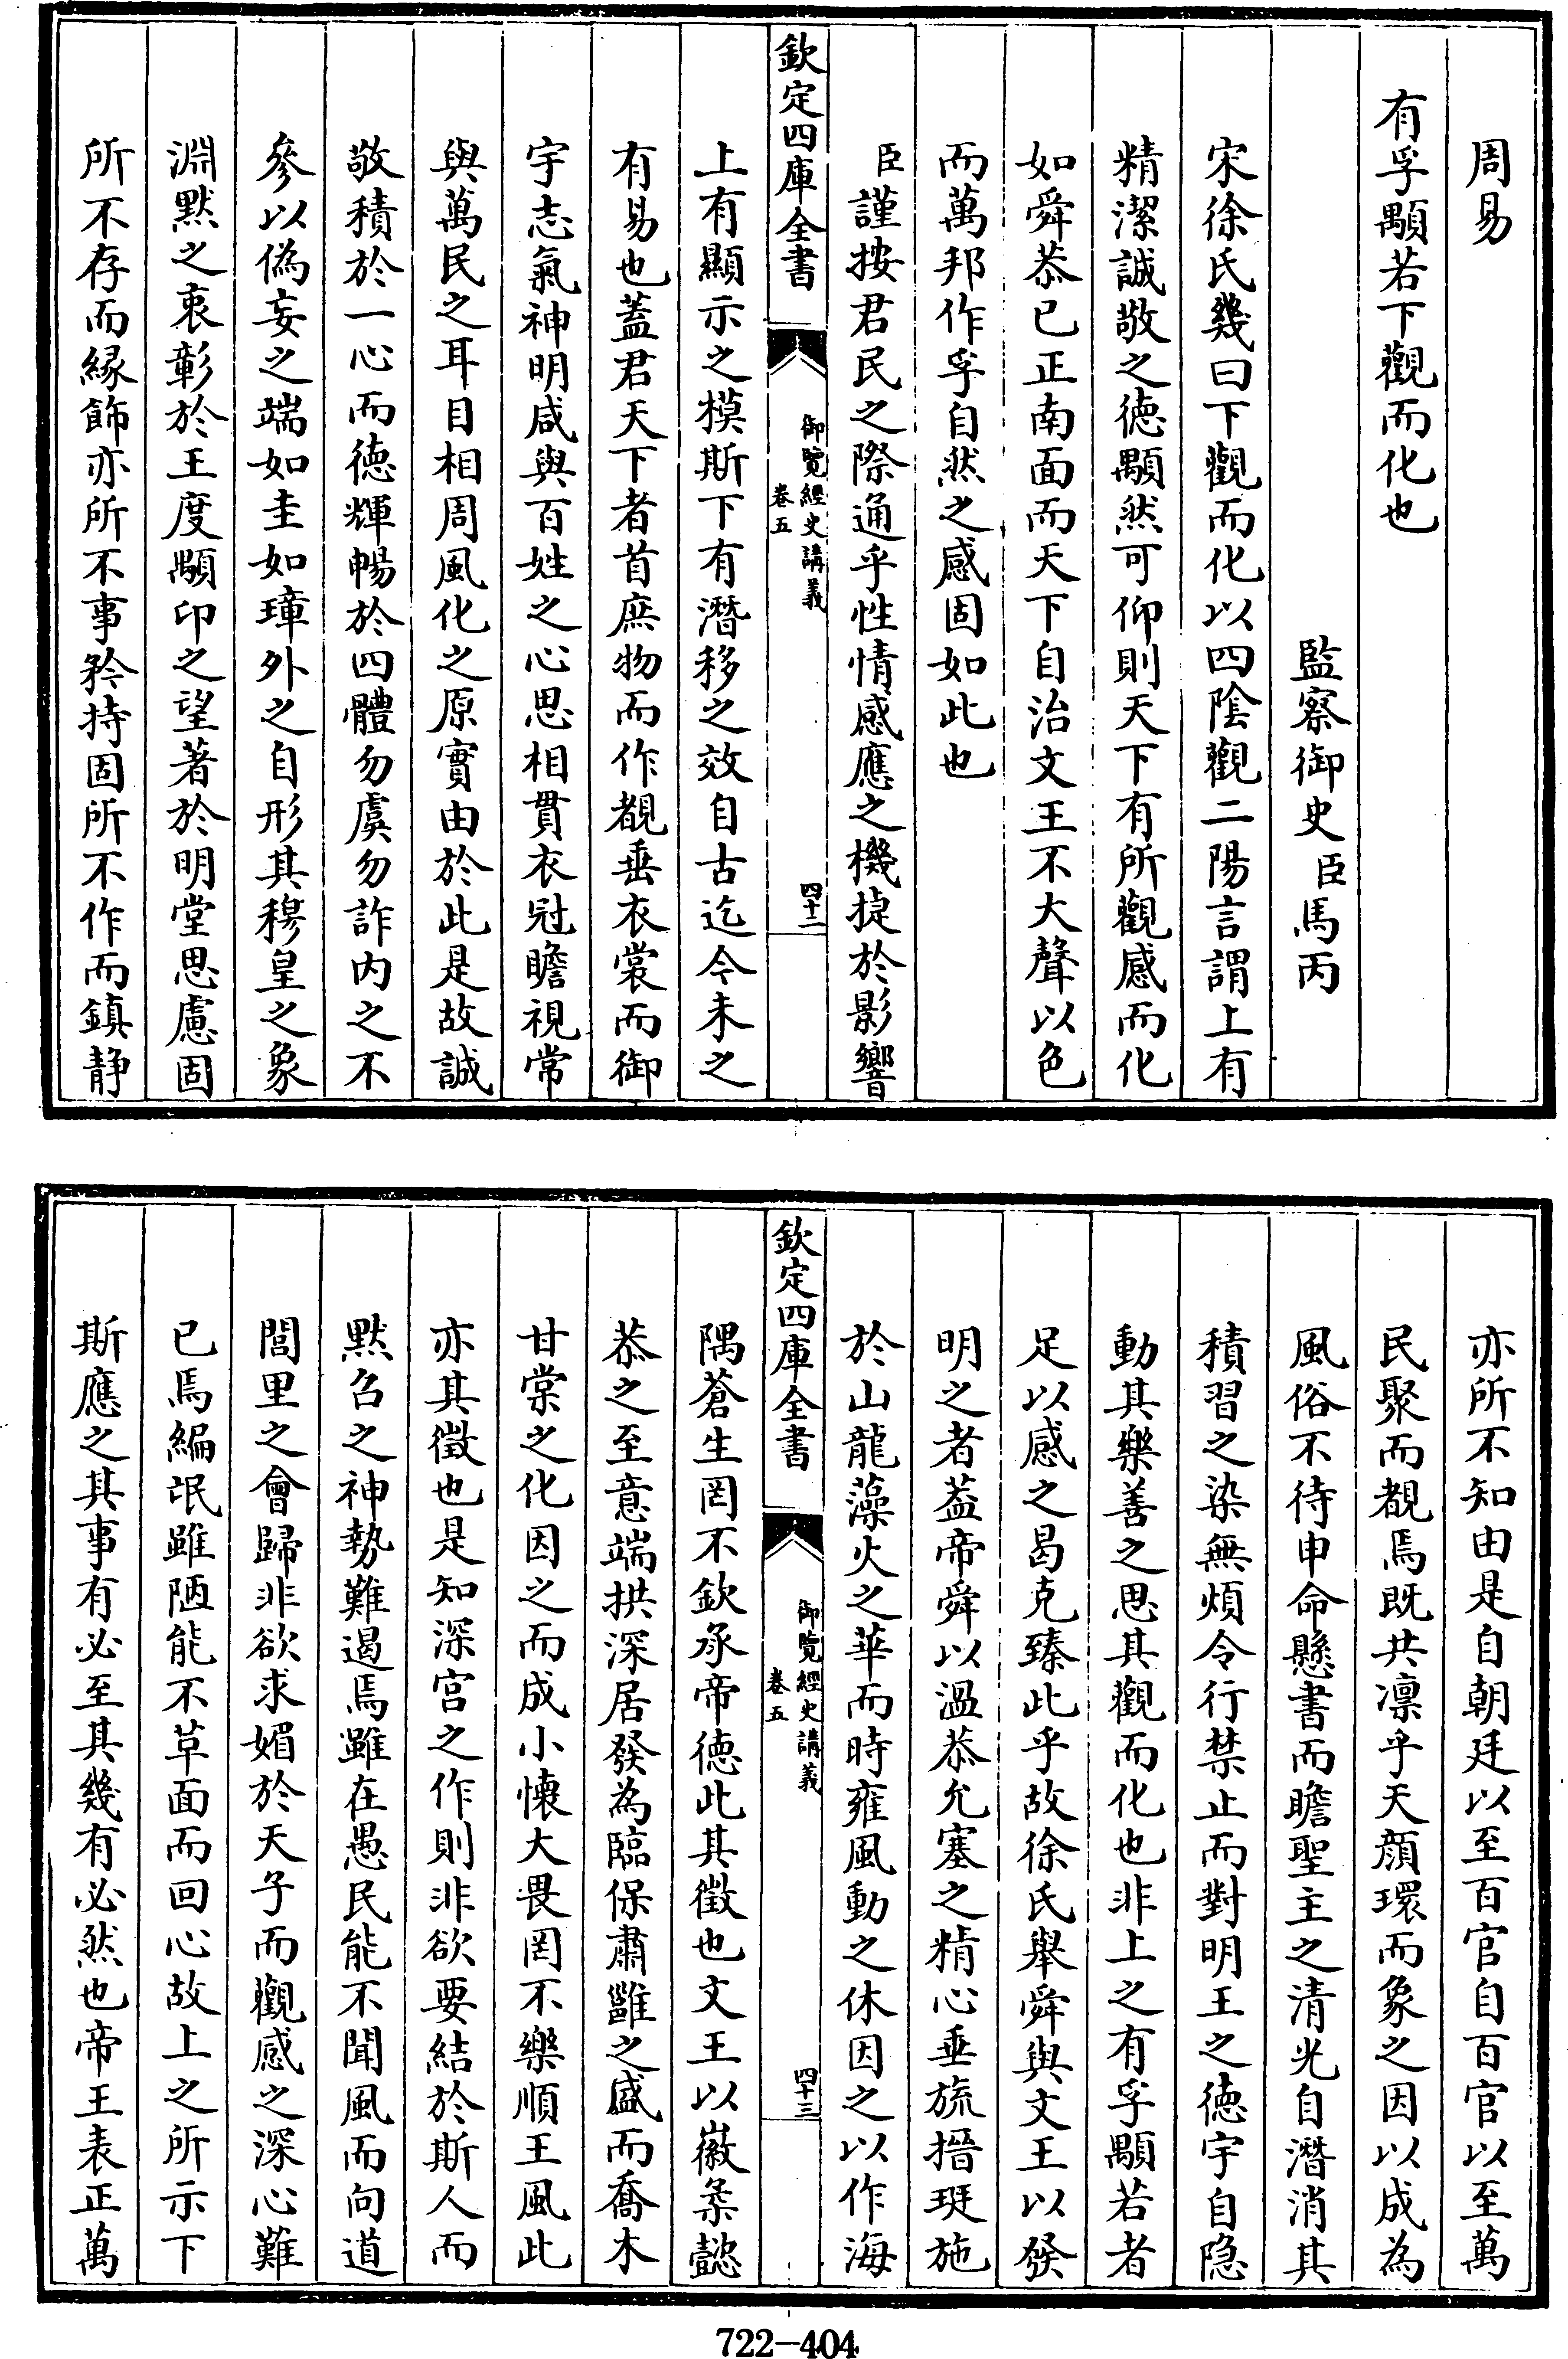 周易
有孚顒若下觀而化也
監察御史臣馬丙
宋徐氏幾曰下觀而化以四陰觀二陽言謂上有
精潔誠敬之德顒然可仰則天下有所觀感而化
如舜恭已正南面而天下自治文王不大聲以色
而萬邦作孚自然之感固如此也
臣謹按君民之際通乎性情感應之機捷於影響
欽定四庫全書
御覽經史講義
卷五
四十二
上有顯示之模斯下有潛移之效自古迄今未之
有易也蓋君天下者首庶物而作覩垂衣裳而御
宇志氣神明咸與百姓之心思相貫衣冠瞻視常
與萬民之耳目相周風化之原實由於此是故誠
敬積於一心而德輝暢於四體勿虞勿詐内之不
參以偽妄之端如圭如璋外之自形其穆皇之象
淵黙之衷彰於王度顒卬之望著於明堂思慮固
所不存而緣飾亦所不事矜持固所不作而鎮静
亦所不知由是自朝廷以至百官自百官以至萬
民聚而覩焉既共凛乎天顔環而象之因以成為
風俗不待申命懸書而瞻聖主之清光自潛消其
積習之染無煩令行禁止而對明王之德宇自隐
動其樂善之思其觀而化也非上之有孚顒若者
足以感之曷克臻此乎故徐氏舉舜與文王以發
明之者葢帝舜以溫恭允塞之精心垂旒搢珽施
於山龍藻火之華而時雍風動之休因之以作海
欽定四庫全書
御覽經史講義
卷五
四十三
隅蒼生罔不欽承帝德此其徵也文王以徽柔懿
恭之至意端拱深居發為臨保肅雝之盛而喬木
甘棠之化因之而成小懷大畏罔不樂順王風此
亦其徵也是知深宫之作則非欲要結於斯人而
黙召之神勢難遏焉雖在愚民能不聞風而向道
閭里之會歸非欲求媚於天子而觀感之深心難
已焉編氓雖陋能不革面而回心故上之所示下
斯應之其事有必至其幾有必然也帝王表正萬
722-404